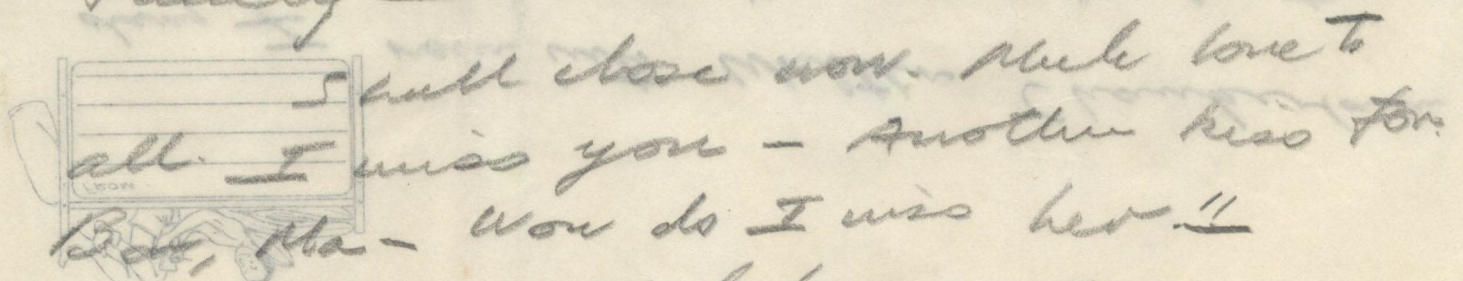 Shall close now. Much love to
all. I miss you — Another kiss for
Bar, Ma — Wow do I miss her!!